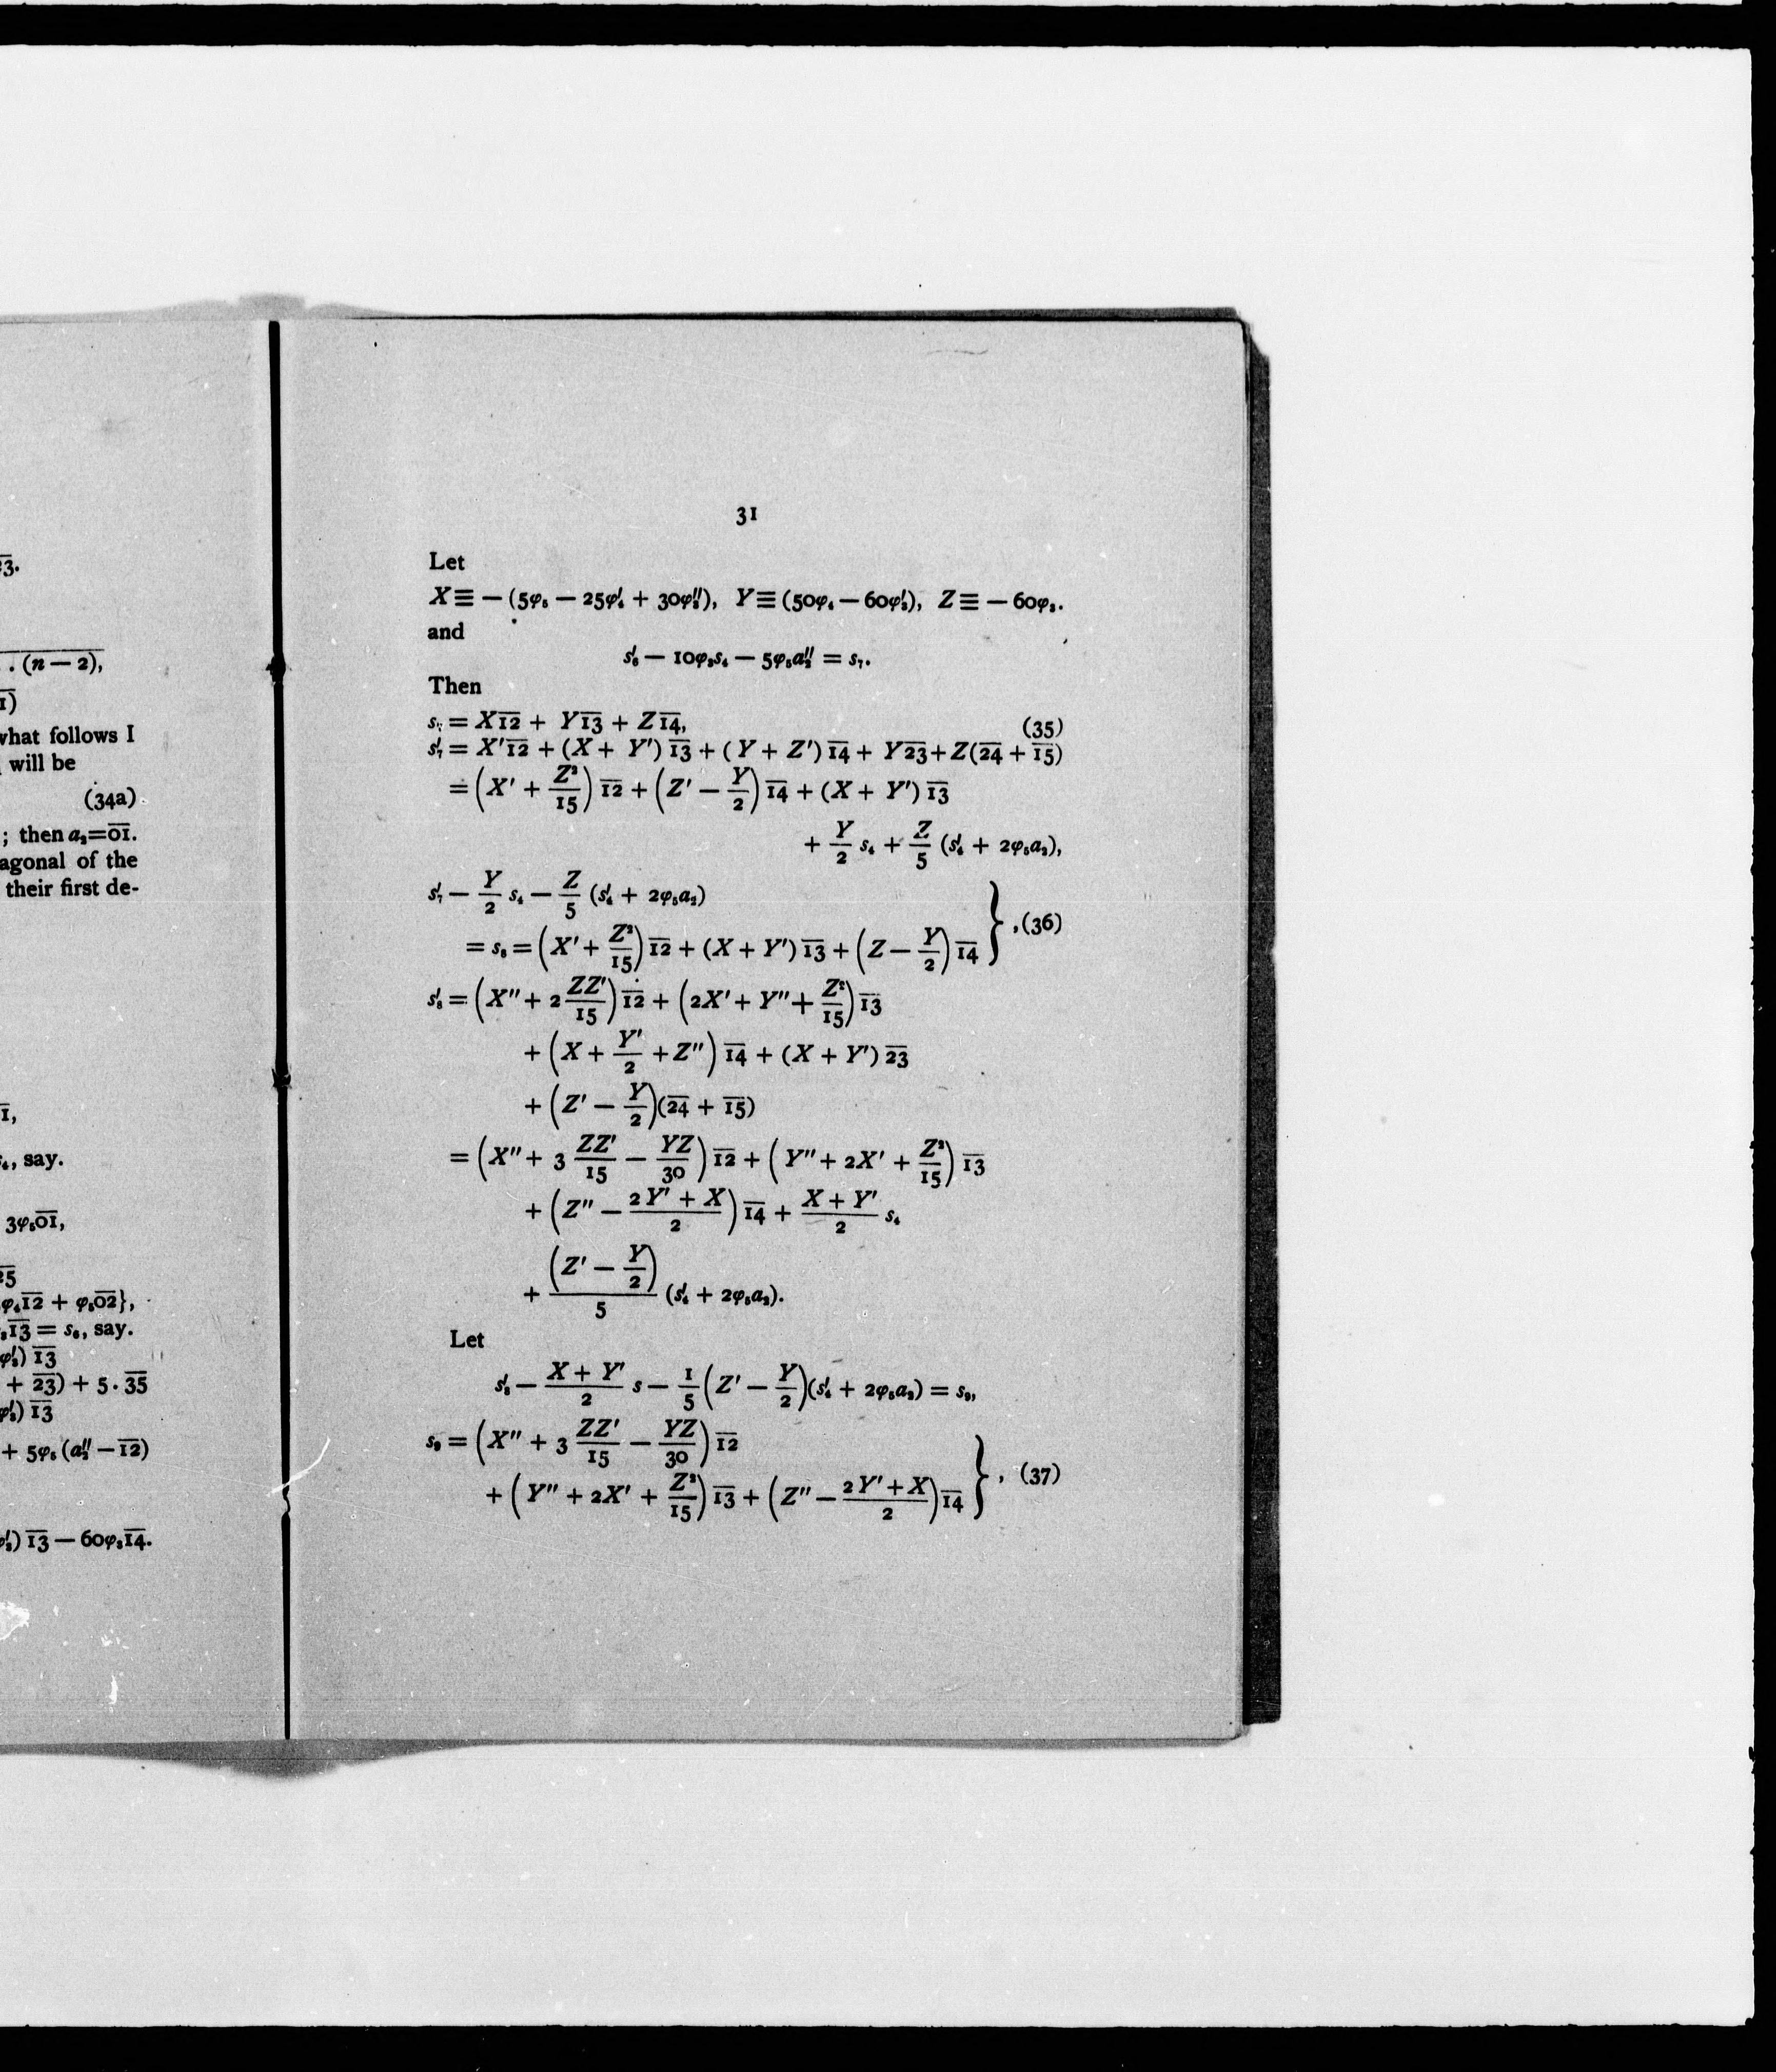 3.
. . (n — 2),
1)
what follows I
will be
(34a)
; then a₂=0̅1̅.
agonal of the
their first de-
1̅,
₄, say.
3φ₅0̅1̅,
2̅5̅
φ₄1̅2̅ + φ₅0̅2̅},
₃1̅3̅ = s₆, say.
φ′₃) 1̅3̅
+ 2̅3̅) + 5 · 3̅5̅
φ′₃) 1̅3̅
+ 5φ₅ (a″₂ — 1̅2̅)
φ′₃) 1̅3̅ — 60φ₃1̅4̅.
31
Let
X ≡ — (5φ₅ — 25φ′₄ + 30φ″₃), Y ≡ (50φ₄ — 60φ′₃), Z ≡ — 60φ₃.
and
s′₆ — 10φ₃s₄ — 5φ₅a″₂ = s₇.
Then
s₇ = X1̅2̅ + Y1̅3̅ + Z1̅4̅, (35)
s′₇ = X′1̅2̅ + (X + Y′) 1̅3̅ + (Y + Z′) 1̅4̅ + Y2̅3̅ + Z(2̅4̅ + 1̅5̅)
= (X′ + Z²/15) 1̅2̅ + (Z′ — Y/2) 1̅4̅ + (X + Y′) 1̅3̅
+ Y/2 s₄ + Z/5 (s′₄ + 2φ₅a₂),
s′₇ — Y/2 s₄ — Z/5 (s′₄ + 2φ₅a₂)
= s₈ = (X′ + Z²/15) 1̅2̅ + (X + Y′) 1̅3̅ + (Z — Y/2) 1̅4̅ }, (36)
s′₈ = (X″ + 2 ZZ′/15) 1̅2̅ + (2X′ + Y″ + Z²/15) 1̅3̅
+ (X + Y′/2 + Z″) 1̅4̅ + (X + Y′) 2̅3̅
+ (Z′ — Y/2)(2̅4̅ + 1̅5̅)
= (X″ + 3 ZZ′/15 — YZ/30) 1̅2̅ + (Y″ + 2X′ + Z²/15) 1̅3̅
+ (Z″ — (2Y′ + X)/2) 1̅4̅ + (X + Y′)/2 s₄
+ (Z′ — Y/2)/5 (s′₄ + 2φ₅a₂).
Let
s′₈ — (X + Y′)/2 s — 1/5 (Z′ — Y/2)(s′₄ + 2φ₅a₂) = s₉,
s₉ = (X″ + 3 ZZ′/15 — YZ/30) 1̅2̅
+ (Y″ + 2X′ + Z²/15) 1̅3̅ + (Z″ — (2Y′ + X)/2) 1̅4̅ }, (37)